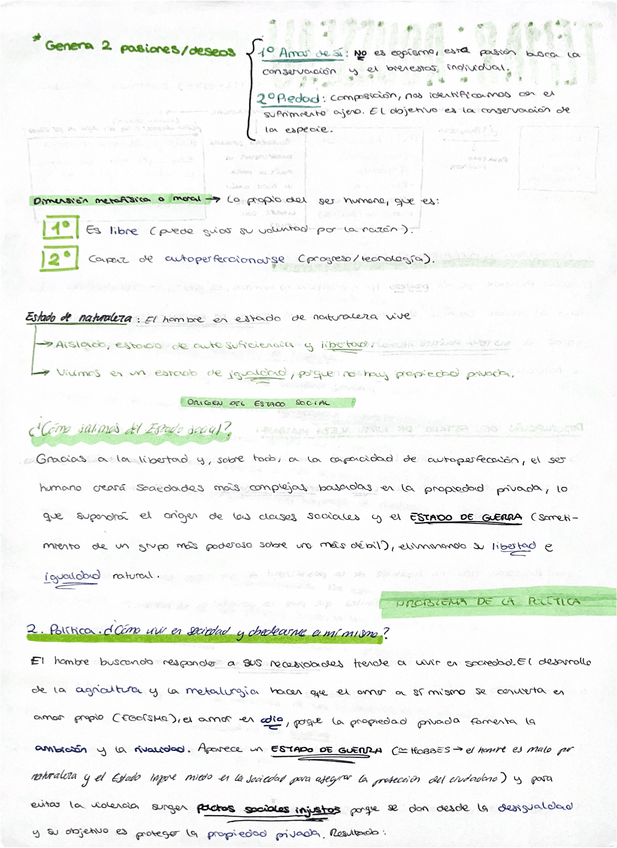 * Genera 2 pasiones/deseos
1º Amor de sí: No es egoísmo, esta pasión busca la
conservación y el bienestar individual.
2º Piedad: Composición, nos identificamos con el
sufrimiento ajeno. El objetivo es la conservación de
la especie.
Dimensión metafísica o moral → Lo propio del ser humano, que es:
1º Es libre (puede guiar su voluntad por la razón).
2º Capaz de autoperfeccionarse (progreso/tecnología).
Estado de naturaleza: El hombre en estado de naturaleza vive
→ Aislado, estado de autosuficiencia y libertad.
→ Vivimos en un estado de igualdad, porque no hay propiedad privada.
ORIGEN DEL ESTADO SOCIAL
¿Cómo salimos del Estado social?
Gracias a la libertad y, sobre todo, a la capacidad de autoperfección, el ser
humano creará sociedades más complejas basadas en la propiedad privada, lo
que supondrá el origen de las clases sociales y el ESTADO DE GUERRA (someti-
miento de un grupo más poderoso sobre uno más débil), eliminando su libertad e
igualdad natural.
PROBLEMA DE LA POLÍTICA
2. Política. ¿Cómo vivir en sociedad y obedecerme a mí mismo?
El hombre buscando responder a sus necesidades tiende a vivir en sociedad. El desarrollo
de la agricultura y la metalurgia hacen que el amor a sí mismo se convierta en
amor propio (EGOÍSMO), el amor en odio, porque la propiedad privada fomenta la
ambición y la rivalidad. Aparece un ESTADO DE GUERRA (≃ HOBBES → el hombre es malo por
naturaleza y el Estado impone miedo en la sociedad para asegurar la protección del ciudadano) y para
evitar la violencia surgen pactos sociales injustos porque se dan desde la desigualdad
y su objetivo es proteger la propiedad privada. Resultado: